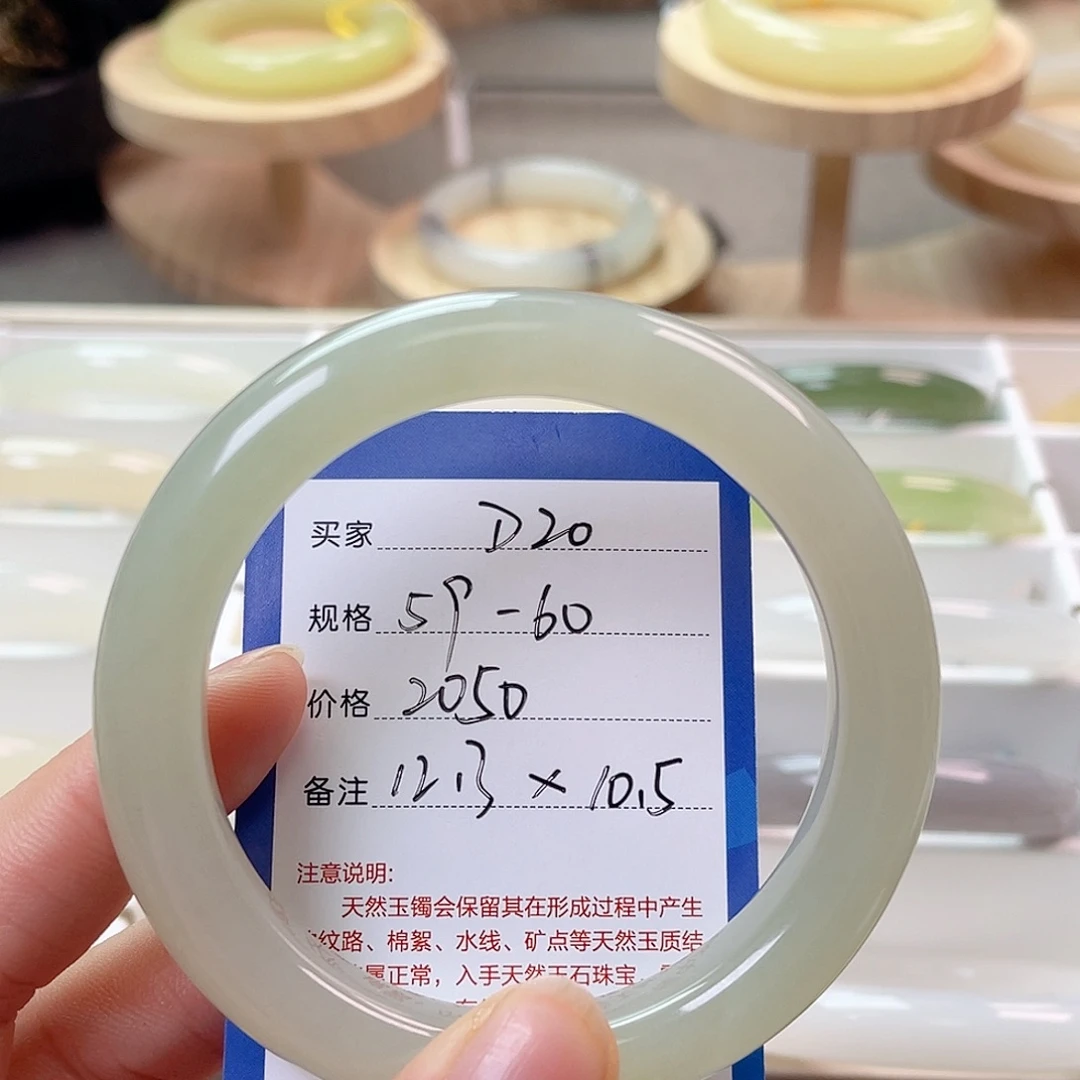 买家 D20
规格 59-60
价格 2050
备注 12.3 × 10.5
注意说明:
天然玉镯会保留其在形成过程中产生
纹路、棉絮、水线、矿点等天然玉质结
属正常，入手天然玉石珠宝